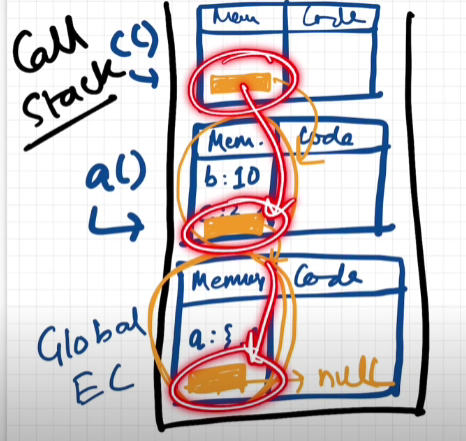 Call
Stack
c()
Mem Code
a()
Mem. Code
b:10
Global
EC
Memory Code
a:{
null